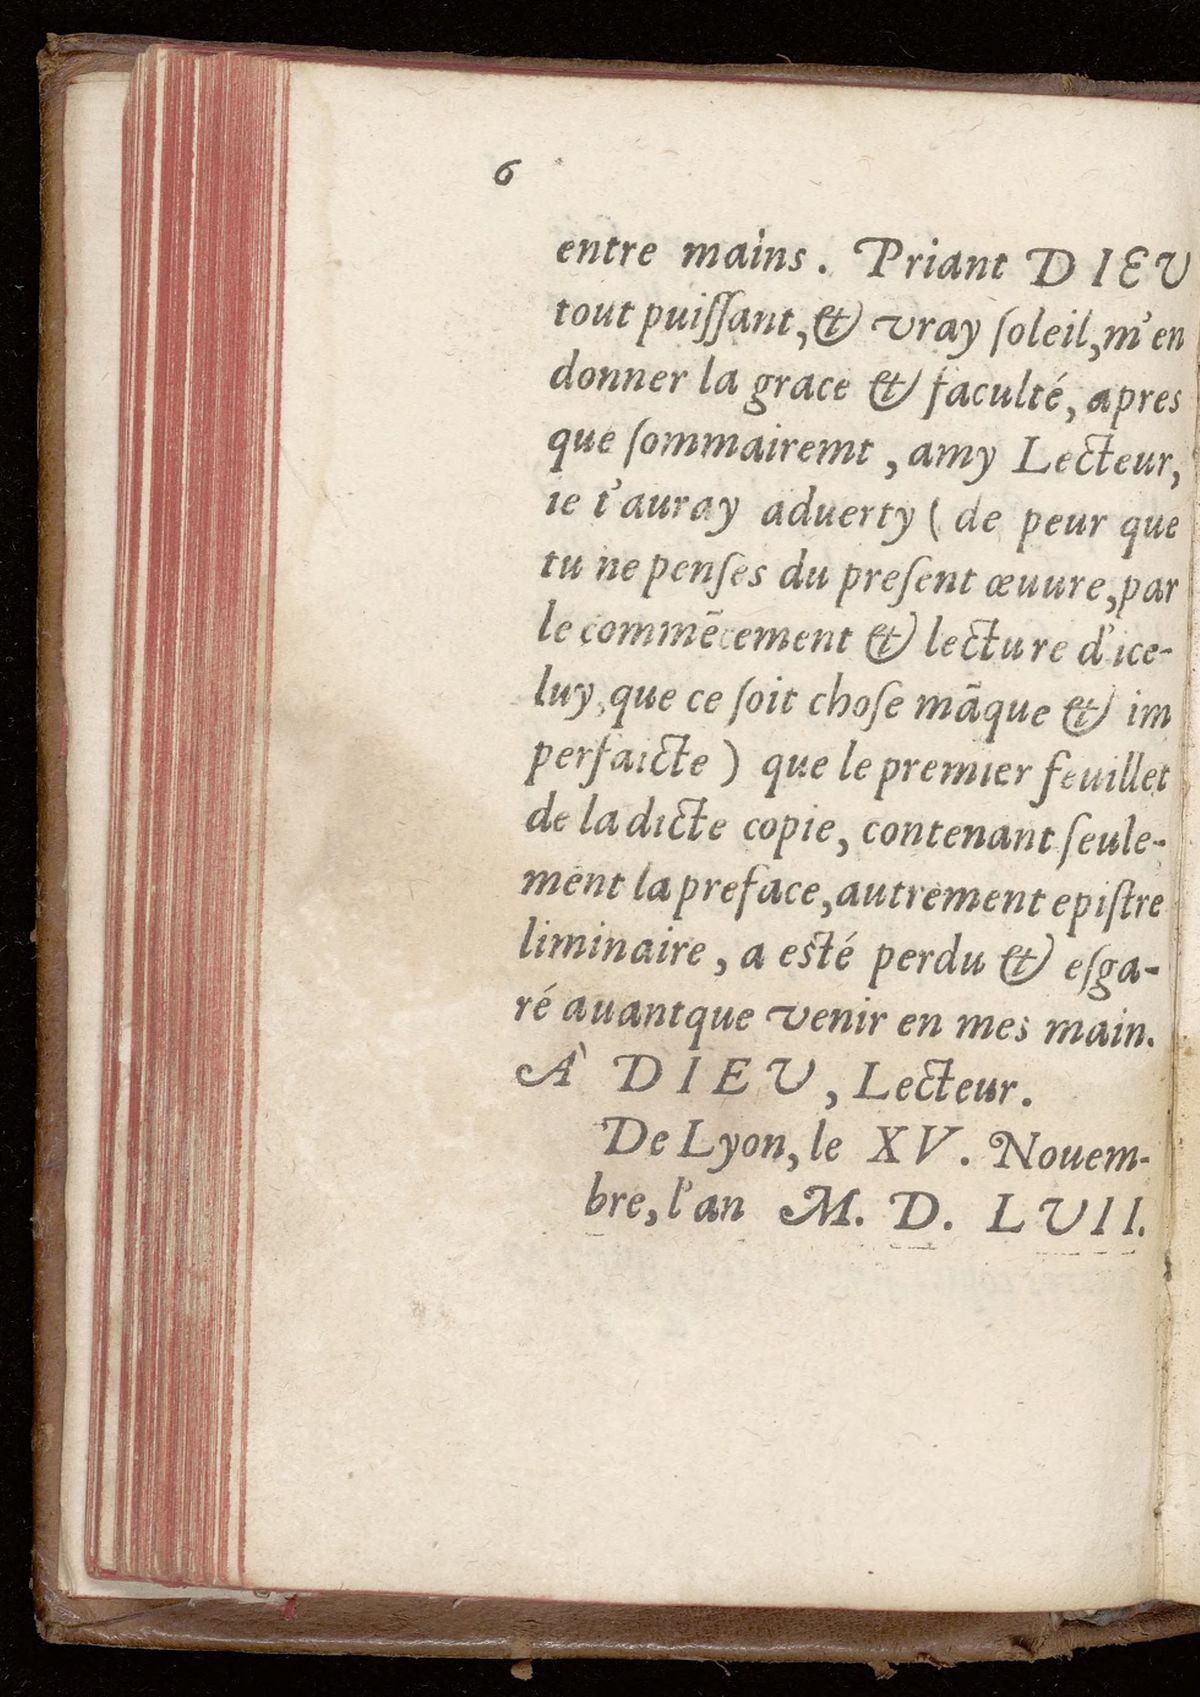 6
entre mains. Priant DIEU
tout puiſſant, & vray ſoleil, m'en
donner la grace & faculté, apres
que ſommairemt, amy Lecteur,
ie t'auray aduerty ( de peur que
tu ne penſes du preſent œuure, par
le commẽcement & lecture d'ice-
luy, que ce ſoit choſe mãque & im
perfaicte ) que le premier feuillet
de la dicte copie, contenant ſeule-
ment la preface, autrement epiſtre
liminaire, a eſté perdu & eſga-
ré auantque venir en mes main.
À DIEU, Lecteur.
De Lyon, le XV. Nouem-
bre, l'an M. D. LVII.